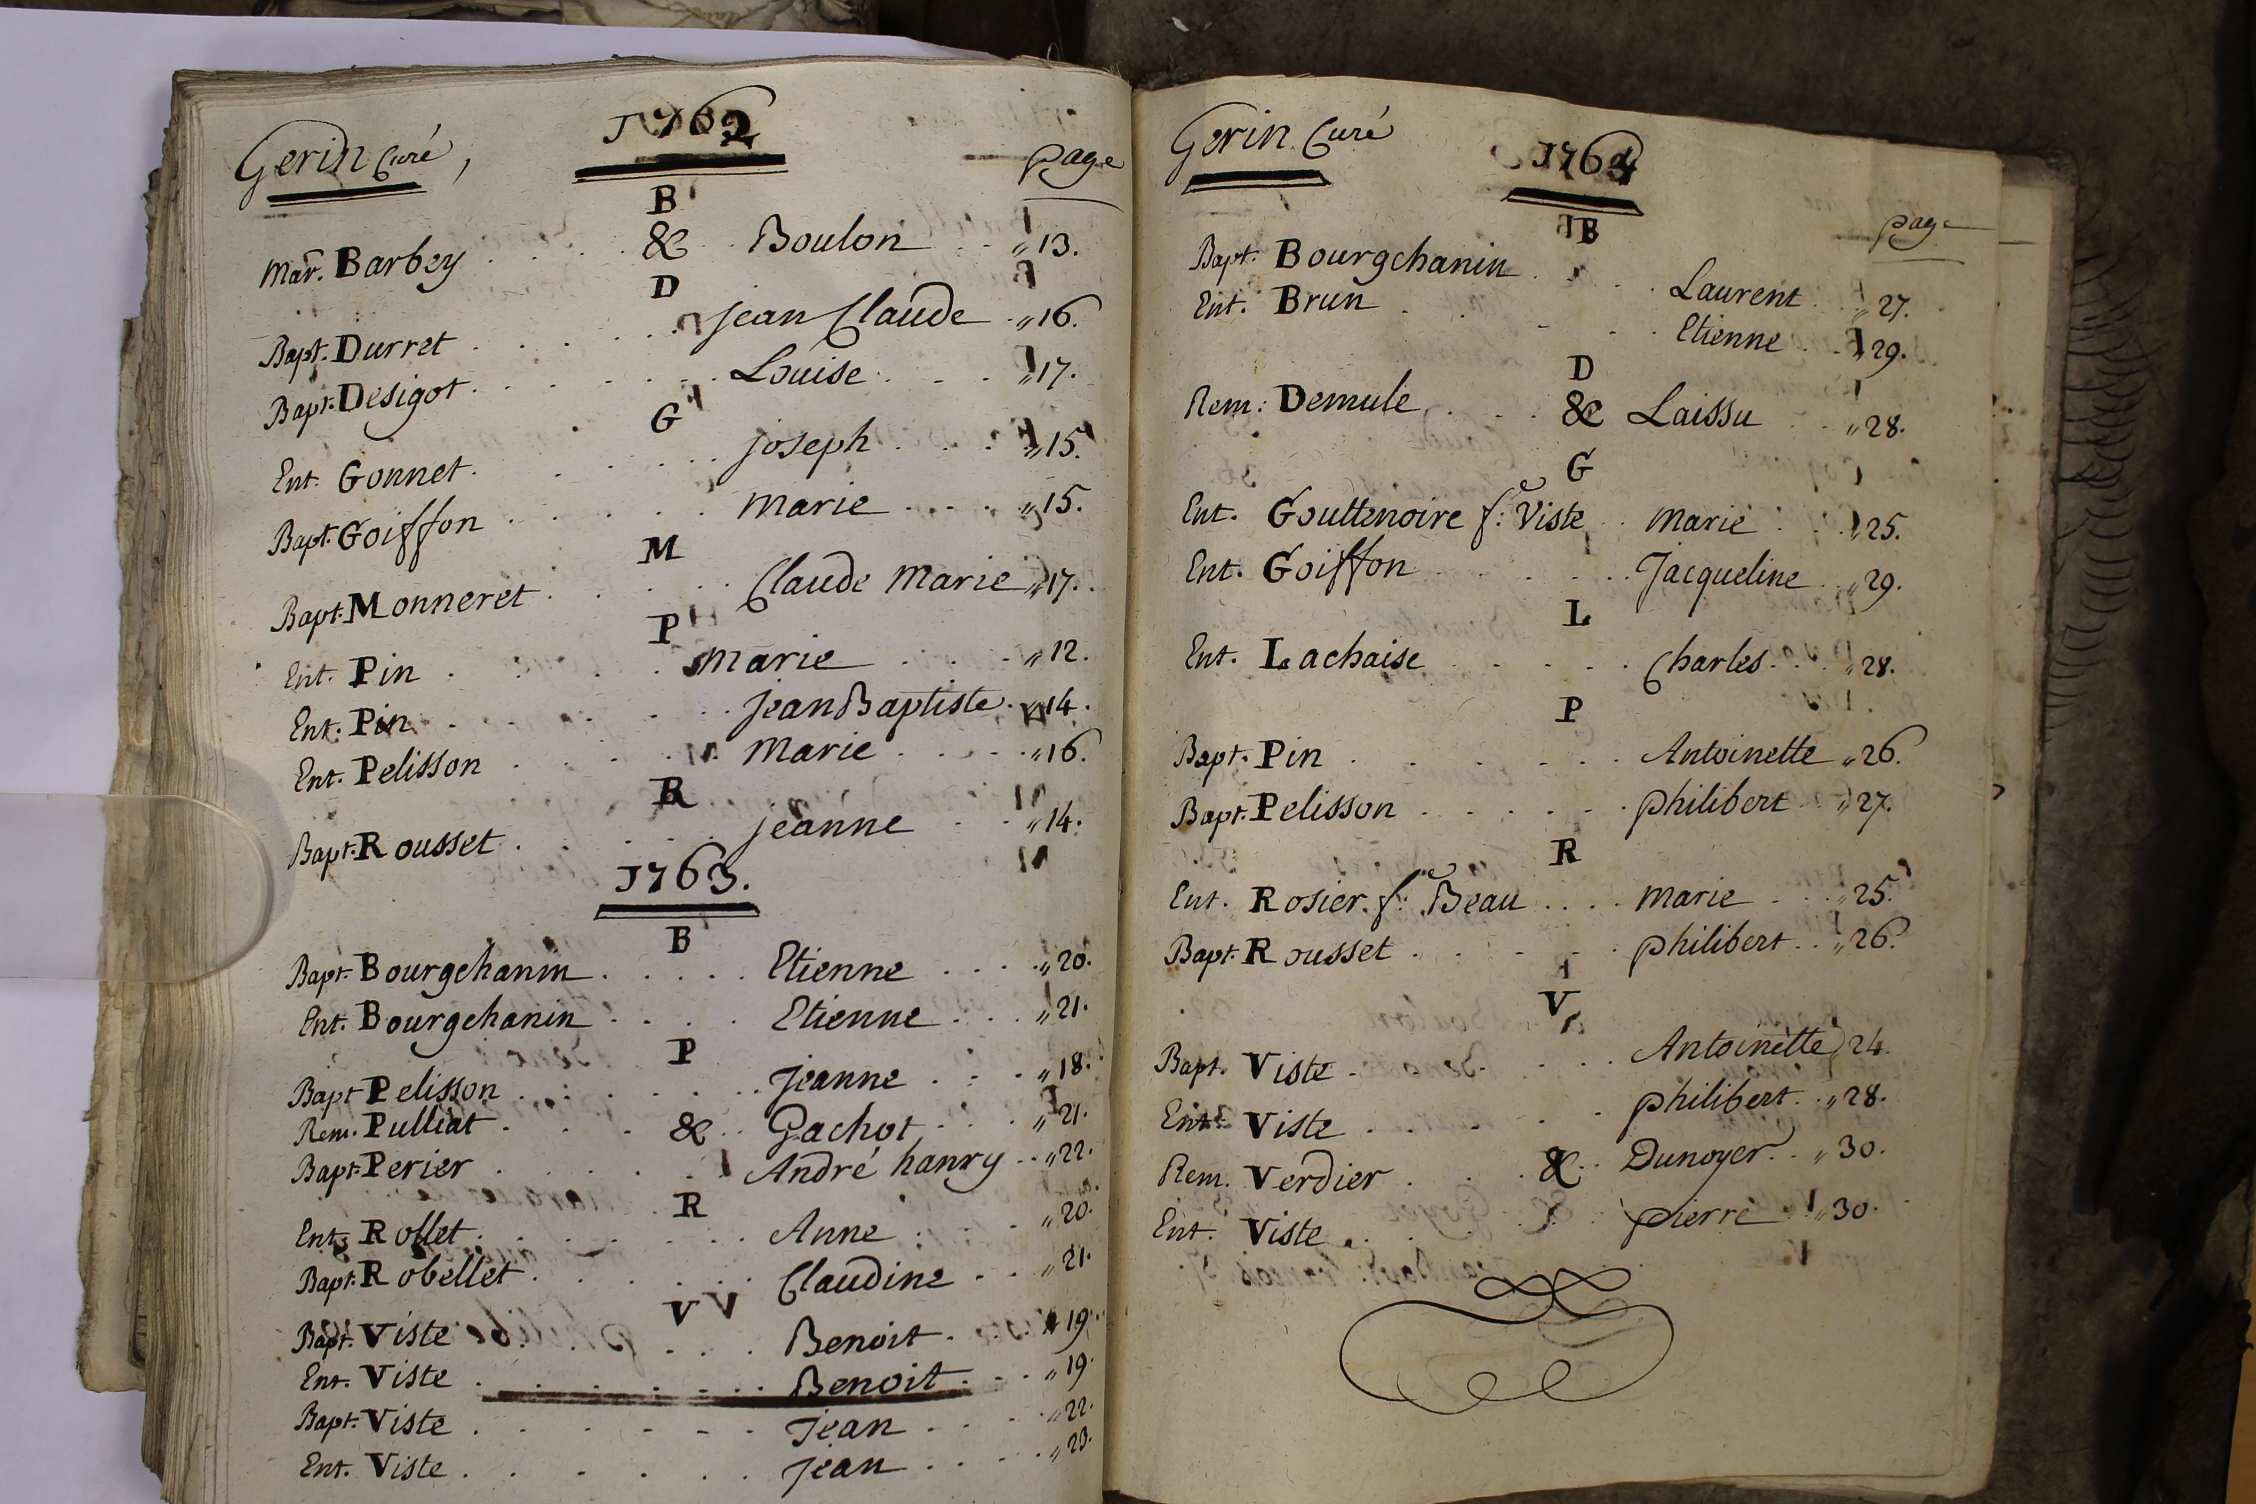 Gerin Curé, 1762 page
B
Mar. Barbey . . . . & . . Boulon . . „ 13.
D
Bapt. Durret . . . . . . Jean Claude . „ 16.
Bapt. Desigot . . . . . . . Louise . . . „ 17.
G
Ent. Gonnet . . . . . . . joseph . . . „ 15.
Bapt. Goiffon . . . . . . marie . . . . „ 15.
M
Bapt. Monneret . . . . . Claude Marie „ 17.
P
Ent. Pin . . . . . marie . . . . „ 12.
Ent. Pin . . . . . . . Jean Baptiste . „ 14.
Ent. Pelisson . . . . . . Marie . . . . . „ 16.
R
Bapt. Rousset . . . . . . jeanne . . „ 14.
1763.
B
Bapt. Bourgchanin . . . . . Etienne . . . . „ 20.
Ent. Bourgchanin . . . . Etienne . . . „ 21.
P
Bapt Pelisson . . . . . . . Jeanne . . . „ 18.
Rem. Pulliat . . . . & . . Gachot . . . „ 21.
Bapt. Perier . . . . . . André hanry . . „ 22.
R
Ent. Rollet . . . . . . . Anne . . . „ 20.
Bapt. Robellet . . . . . . . Claudine . . „ 21.
V
Bapt. Viste . . . . . . Benoit . . . „ 19.
Ent. Viste . . . . . . . Benoit . . . „ 19.
Bapt. Viste . . . . . . Jean . . . . „ 22.
Ent. Viste . . . . . . Jean . . . . „ 23.
Gerin Curé 1764
page
B
Bapt. Bourgchanin . . . . Laurent . . „ 27.
Ent. Brun . . . . . Etienne . . „ 29.
D
Rem. Demule . . . & Laissu . . „ 28.
G
Ent. Gouttenoire f.e Viste . . marie . . „ 25.
Ent. Goiffon . . . . . . Jacqueline . „ 29.
L
Ent. Lachaise . . . . . Charles . . . „ 28.
P
Bapt. Pin . . . . . . Antoinette „ 26.
Bapt. Pelisson . . . . . . philibert . . „ 27.
R
Ent. Rosier f.e Beau . . . . marie . . . „ 25.
Bapt. Rousset . . . . . . philibert . . „ 26.
V
Bapt. Viste . . . . . . Antoinette „ 24.
Ent. Viste . . . . . . philibert . . „ 28.
Rem. Verdier . . . & . . Dunoyer . . „ 30.
Ent. Viste . . . . . . pierre . „ 30.